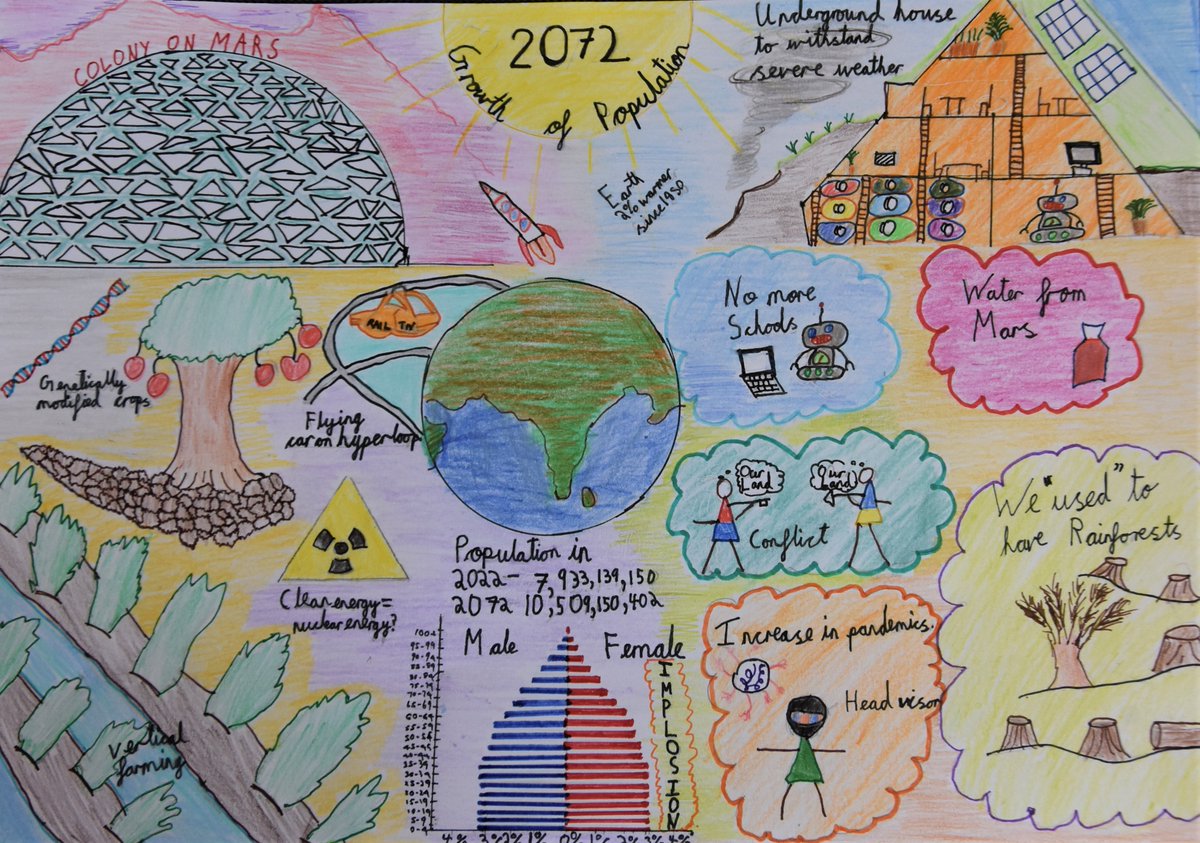 COLONY ON MARS
2072
Growth of Population
Underground house
to withstand
severe weather
Earth
2% warmer
since 1850
Genetically
modified crops
RAIL
Flying
car on hyperloop
No more
Schools
Water from
Mars
Our
Land
Our
Land
Conflict
We "used" to
have Rainforests
Clean energy =
nuclear energy?
Population in
2022 - 7,933,139,150
2072 10,509,150,402
Male Female
IMPLOSION
100+
95-99
90-94
85-89
80-84
75-79
70-74
65-69
60-64
55-59
50-54
45-49
40-44
35-39
30-34
25-29
20-24
15-19
10-14
5-9
0-4
4% 3% 2% 1% 0% 1% 2% 3% 4%
Increase in pandemics.
Head visor
Vertical
farming